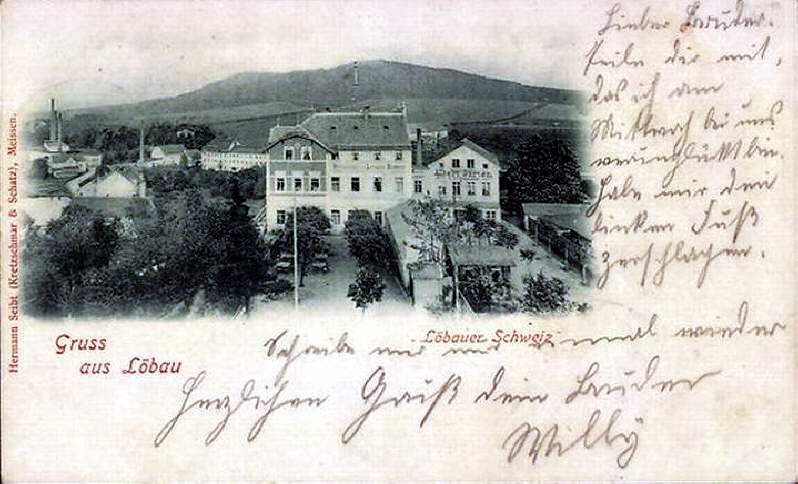 Lieber Bruder!
Teile dir mit,
das ich am
Mittwoch bei uns
verunglückt bin.
Habe mir den
linken Fuß
zerschlagen.
Schreibe mir nur einmal wieder
Herzlichen Gruß dein Bruder
Willy
Gruss
aus Löbau
Löbauer Schweiz
Hermann Seibt (Kretzschmar & Schatz), Meissen.